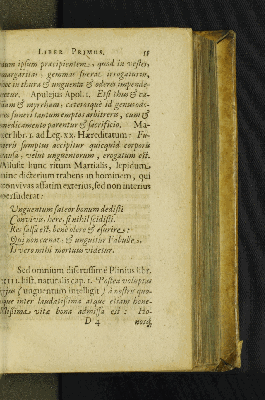 LIBER PRIMUS. 55
dum ipsum præcipientem, quod in vestes,
margaritas, gemmas fuerat irrogaturus,
hoc in thura & unguenta & odores impende-
retur. Apulejus Apol. 1. Etsi thus & ca-
siam & myrrham, cæterosque id genus odo-
res funeri tantum emptos arbitreris, cum &
medicamento parentur & sacrificio. Ma-
cer libr. 1. ad Leg. xx. Hæreditatum: Fu-
neris sumptus accipitur quicquid corporis
causa, velut unguentorum, erogatum est.
Allusit hunc ritum Martialis, lepidum
inde dicterium trahens in hominem, qui
convivas affatim exterius, sed non interius
persuderat:
Unguentum fateor bonum dedisti
Convivis, here, sed nihil scidisti.
Res salsa est, bene olere & esurire:
Qui non cœnat, & ungitur Fabulle,
Is vero mihi mortuus videtur.
Sed omnium disertissime Plinius libr.
XIII. hist. naturalis cap. 1. Postea voluptas
ejus (unguentum intelligit) à nostris quo-
que inter laudatissima atque etiam hone-
stissima vitæ bona admissa est: Ho-
D 4 nosq́;